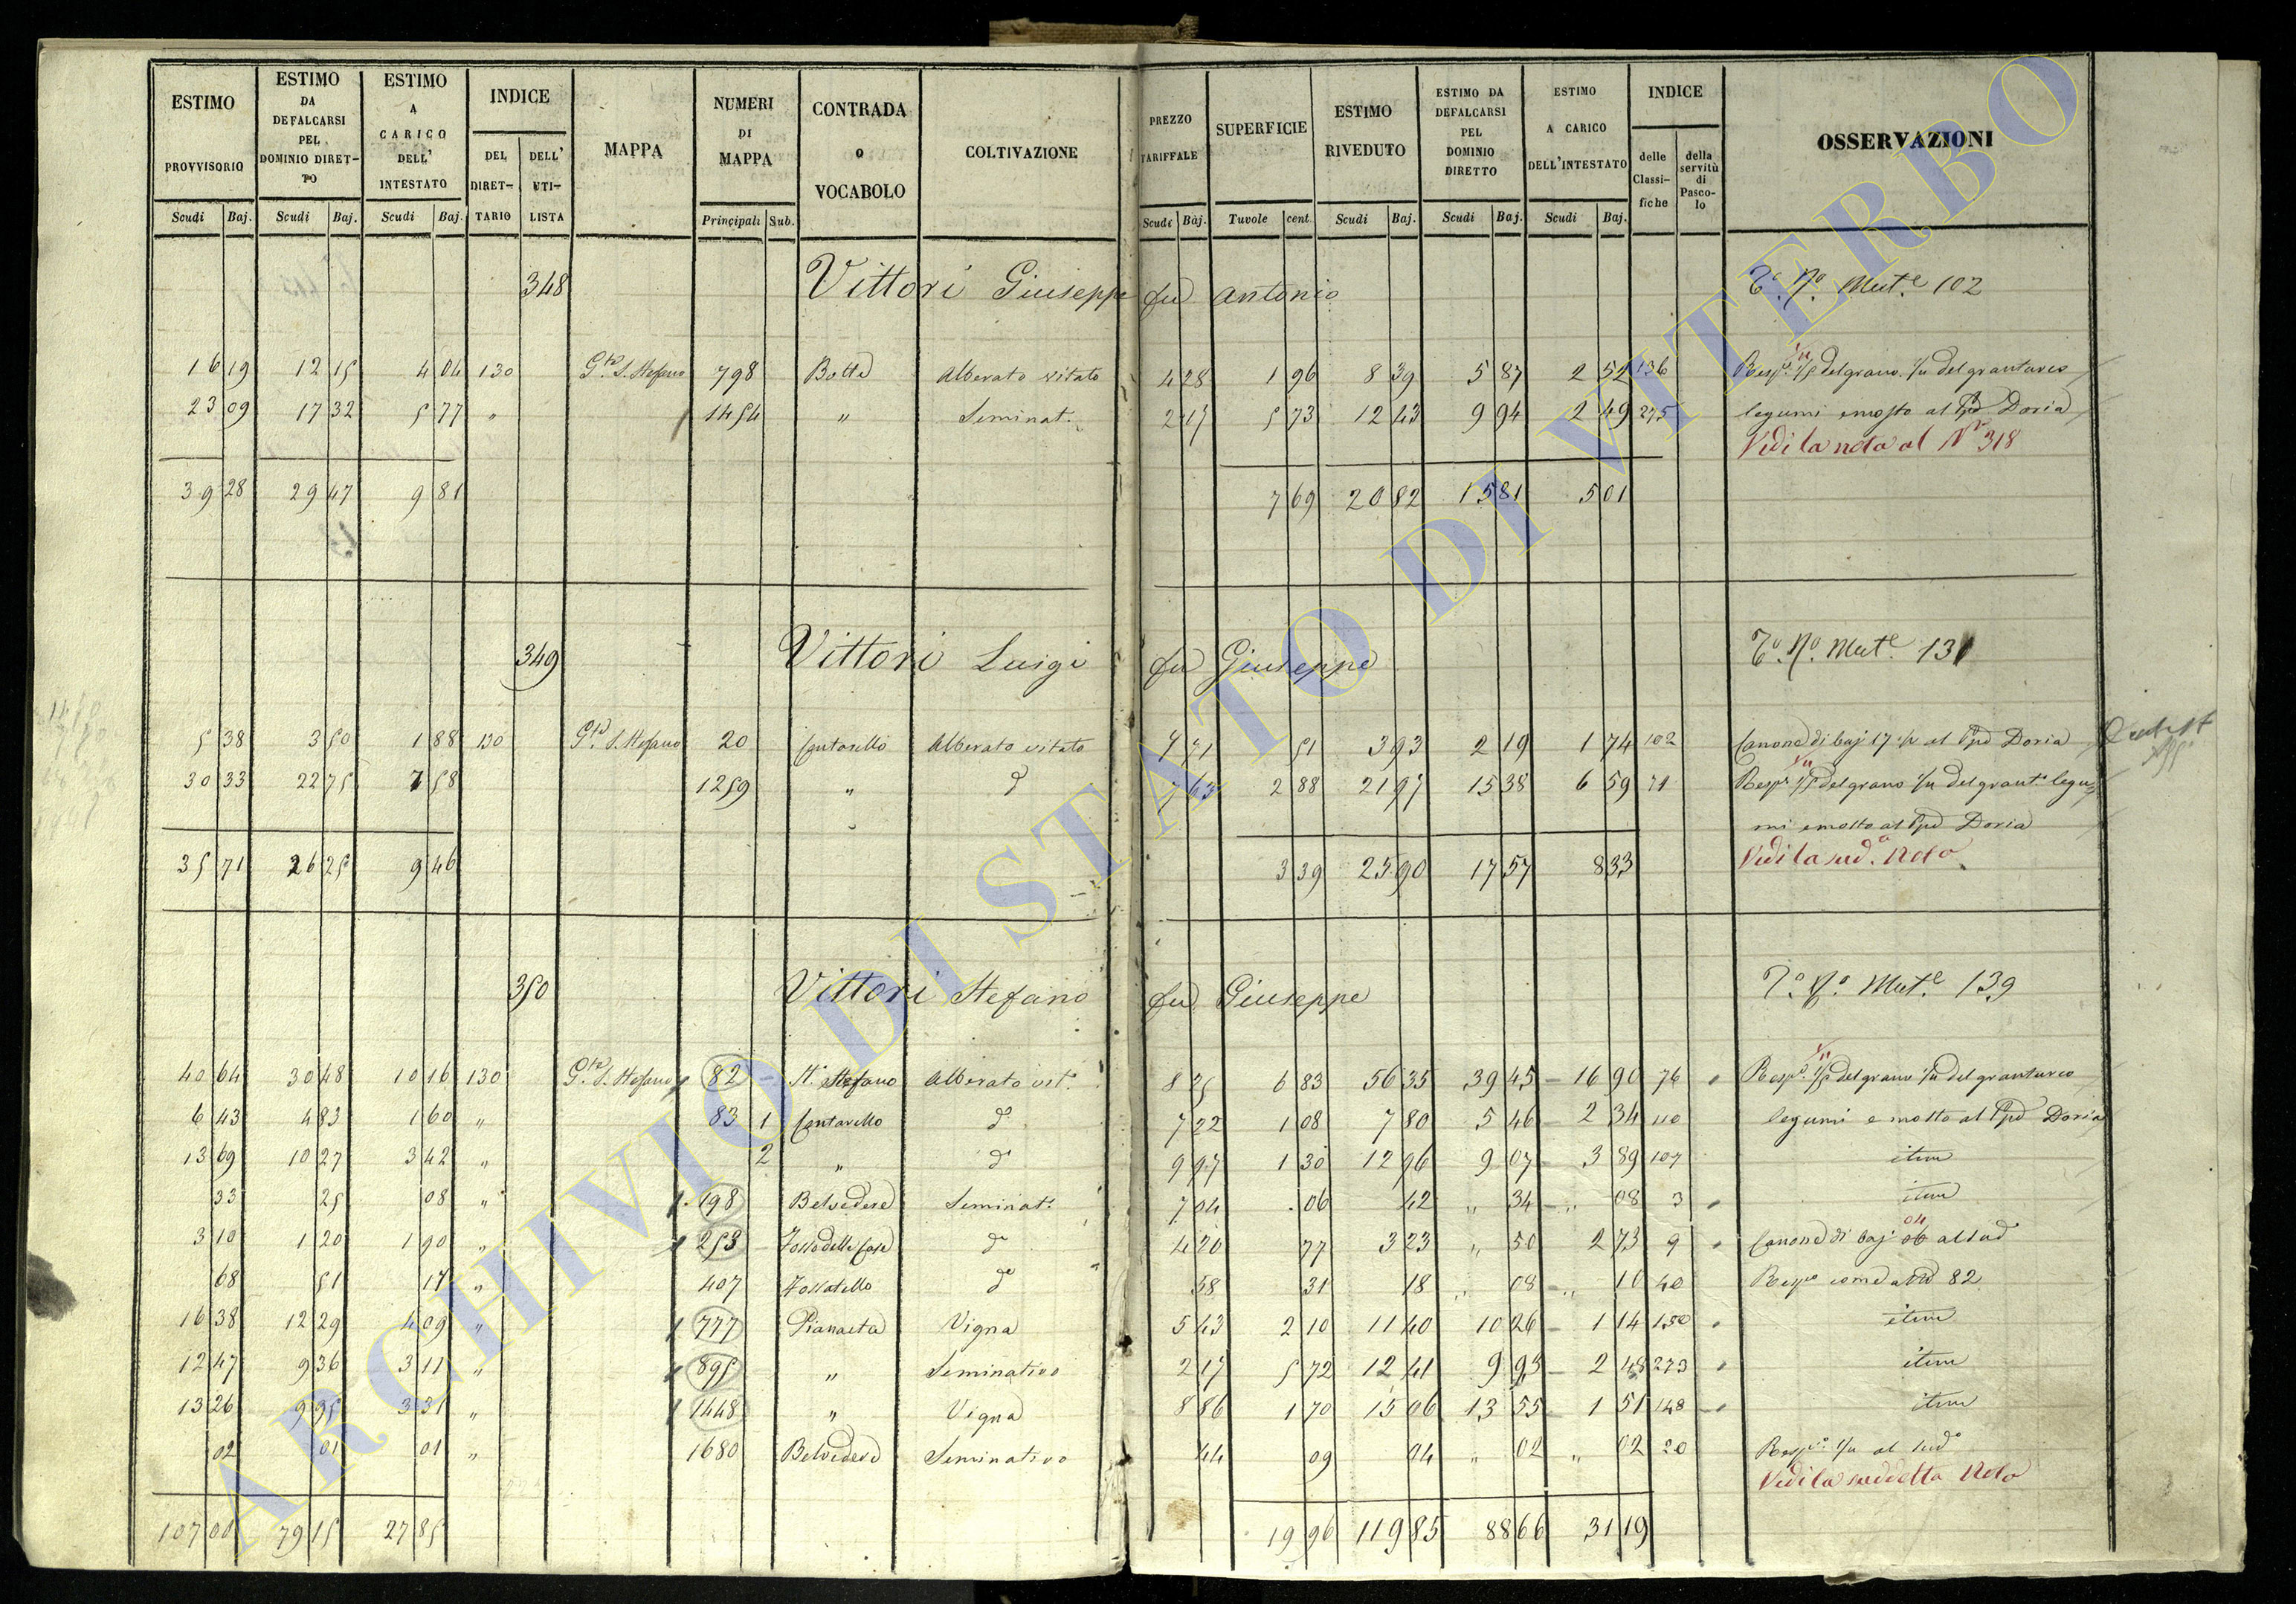 ESTIMO PROVVISORIO Scudi Baj. ESTIMO DA DEFALCARSI PEL DOMINIO DIRET-TO Scudi Baj. ESTIMO A CARICO DELL' INTESTATO Scudi Baj. INDICE DEL DIRET-TARIO DELL' UTI-LISTA MAPPA NUMERI DI MAPPA Principali Sub. CONTRADA O VOCABOLO COLTIVAZIONE PREZZO TARIFFALE Scudi Baj. SUPERFICIE Tavole cent. ESTIMO RIVEDUTO Scudi Baj. ESTIMO DA DEFALCARSI PEL DOMINIO DIRETTO Scudi Baj. ESTIMO A CARICO DELL'INTESTATO Scudi Baj. INDICE delle Classi-fiche della servitù di Pasco-lo OSSERVAZIONI
348 Vittori Giuseppe fu Antonio Mut.e 102
16 19 12 15 4 04 130 S. Stefano 798 Botte Alberato vitato 4 28 1 96 8 39 5 87 2 52 136 del grano del granturco
23 09 17 32 5 77 " 1454 " Seminat. 2 17 5 73 12 43 9 94 2 49 275 legumi e mosto al Doria
Vedi la nota al N 318
39 28 29 47 9 81 7 69 20 82 15 81 5 01
349 Vittori Luigi fu Giuseppe Mut.e 131
5 38 3 50 1 88 130 S. Stefano 20 Cantarello Alberato vitato 7 71 51 3 93 2 19 1 74 102 Canone di baj 17 al Doria
30 33 22 75 7 58 1259 " d 7 63 2 88 21 97 15 38 6 59 71 del grano del legu
mi e mosto al Doria
Vedi la sud.a Nota
35 71 26 25 9 46 3 39 25 90 17 57 8 33
350 Vittori Stefano fu Giuseppe Mut.e 139
40 64 30 48 10 16 130 S. Stefano 82 Stefano Alberato vit. 8 25 6 83 56 35 39 45 16 90 76 del grano del granturco
6 43 4 83 1 60 " 83 1 Cantarello d 7 22 1 08 7 80 5 46 2 34 110 legumi e mosto al Doria
13 69 10 27 3 42 " 2 " d 9 97 1 30 12 96 9 07 3 89 107 item
33 25 08 " 198 Belvedere Seminat. 7 04 06 42 " 34 " 08 3 item
3 10 1 20 1 90 " 253 Fosso delle Case d 4 20 77 3 23 " 50 2 73 9 Canone di baj 04 al sud
68 51 17 " 407 Fossatello d 58 31 18 " 08 " 10 40 come al 82
16 38 12 29 4 09 " 777 Pianaeta Vigna 5 43 2 10 11 40 10 26 1 14 150 item
12 47 9 36 3 11 " 895 " Seminativo 2 17 5 72 12 41 9 93 2 48 273 item
13 26 9 95 3 31 " 1448 " Vigna 8 86 1 70 15 06 13 55 1 51 148 item
02 01 01 " 1680 Belvedere Seminativo 44 09 04 " 02 " 02 20 al sud.o
Vedi la suddetta Nota
107 00 79 15 27 85 19 96 119 85 88 66 31 19
ARCHIVIO DI STATO DI VITERBO